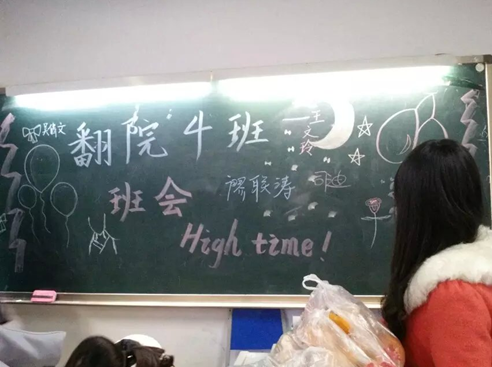 翻院4班
王文玲
班会
廖联涛
High time!